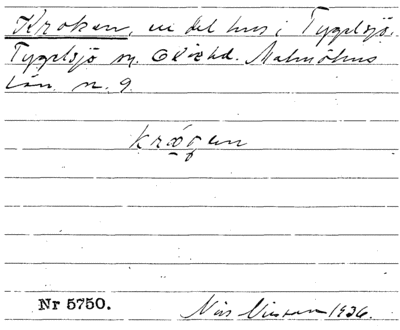 Kroken, en del hus i Tygelsjö.
Tygelsjö sn. Oxie hd. Malmöhus
län. n. 9.
krågen
Nr 5750.
Nils 1926.